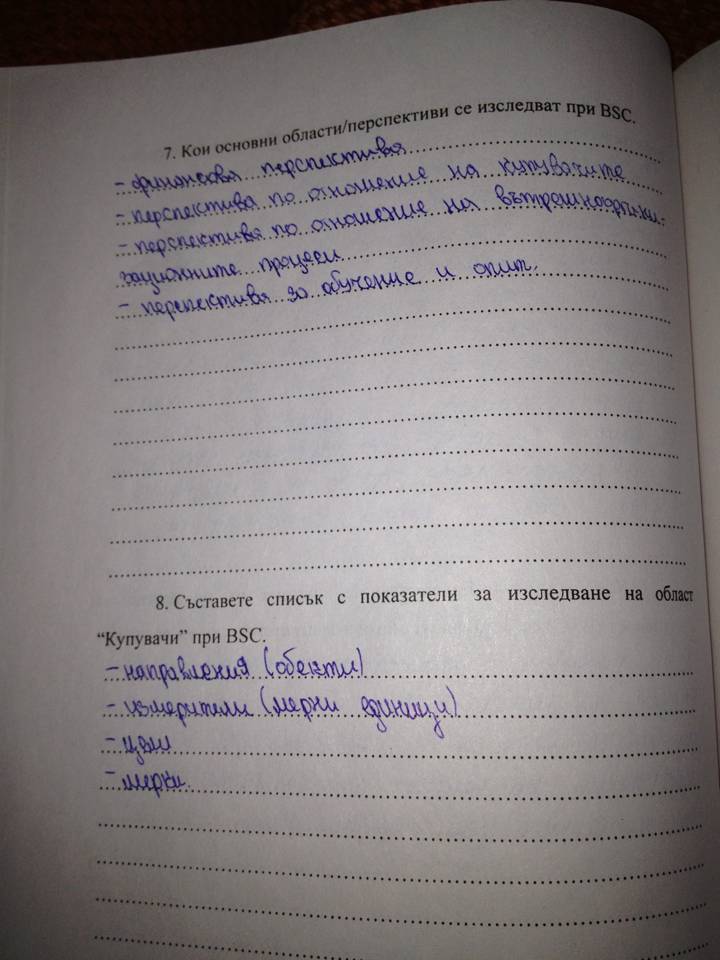 7. Кои основни области/перспективи се изследват при BSC.
- финансова перспектива
- перспектива по отношение на купувачите
- перспектива по отношение на вътрешноорганизационните процеси
- перспектива за обучение и опит.
8. Съставете списък с показатели за изследване на област
“Купувачи” при BSC.
- направления (обекти)
- измерители (мерни единици)
- цели
- мерки.